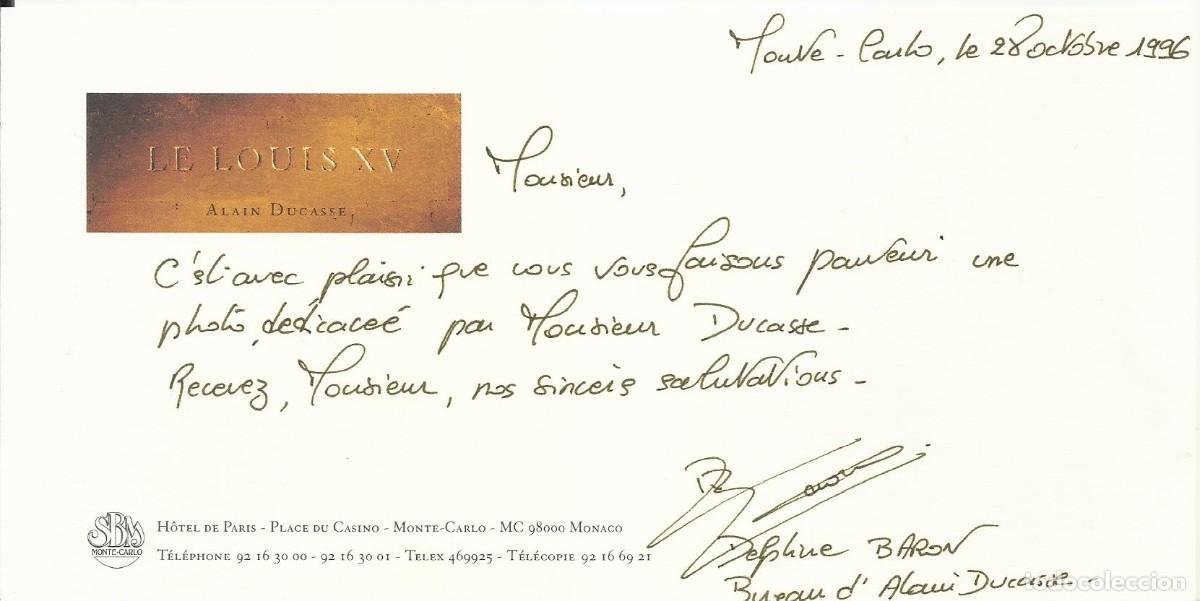 Monte-Carlo, le 28 octobre 1996
LE LOUIS XV
ALAIN DUCASSE
Monsieur,
C'est avec plaisir que nous vous faisons parvenir une
photo dédicacée par Monsieur Ducasse -
Recevez, Monsieur, nos sincères salutations -
Delphine BARON
Bureau d'Alain Ducasse -
SBM
MONTE-CARLO
HÔTEL DE PARIS - PLACE DU CASINO - MONTE-CARLO - MC 98000 MONACO
TÉLÉPHONE 92 16 30 00 - 92 16 30 01 - TELEX 469925 - TÉLÉCOPIE 92 16 69 21
todocoleccion